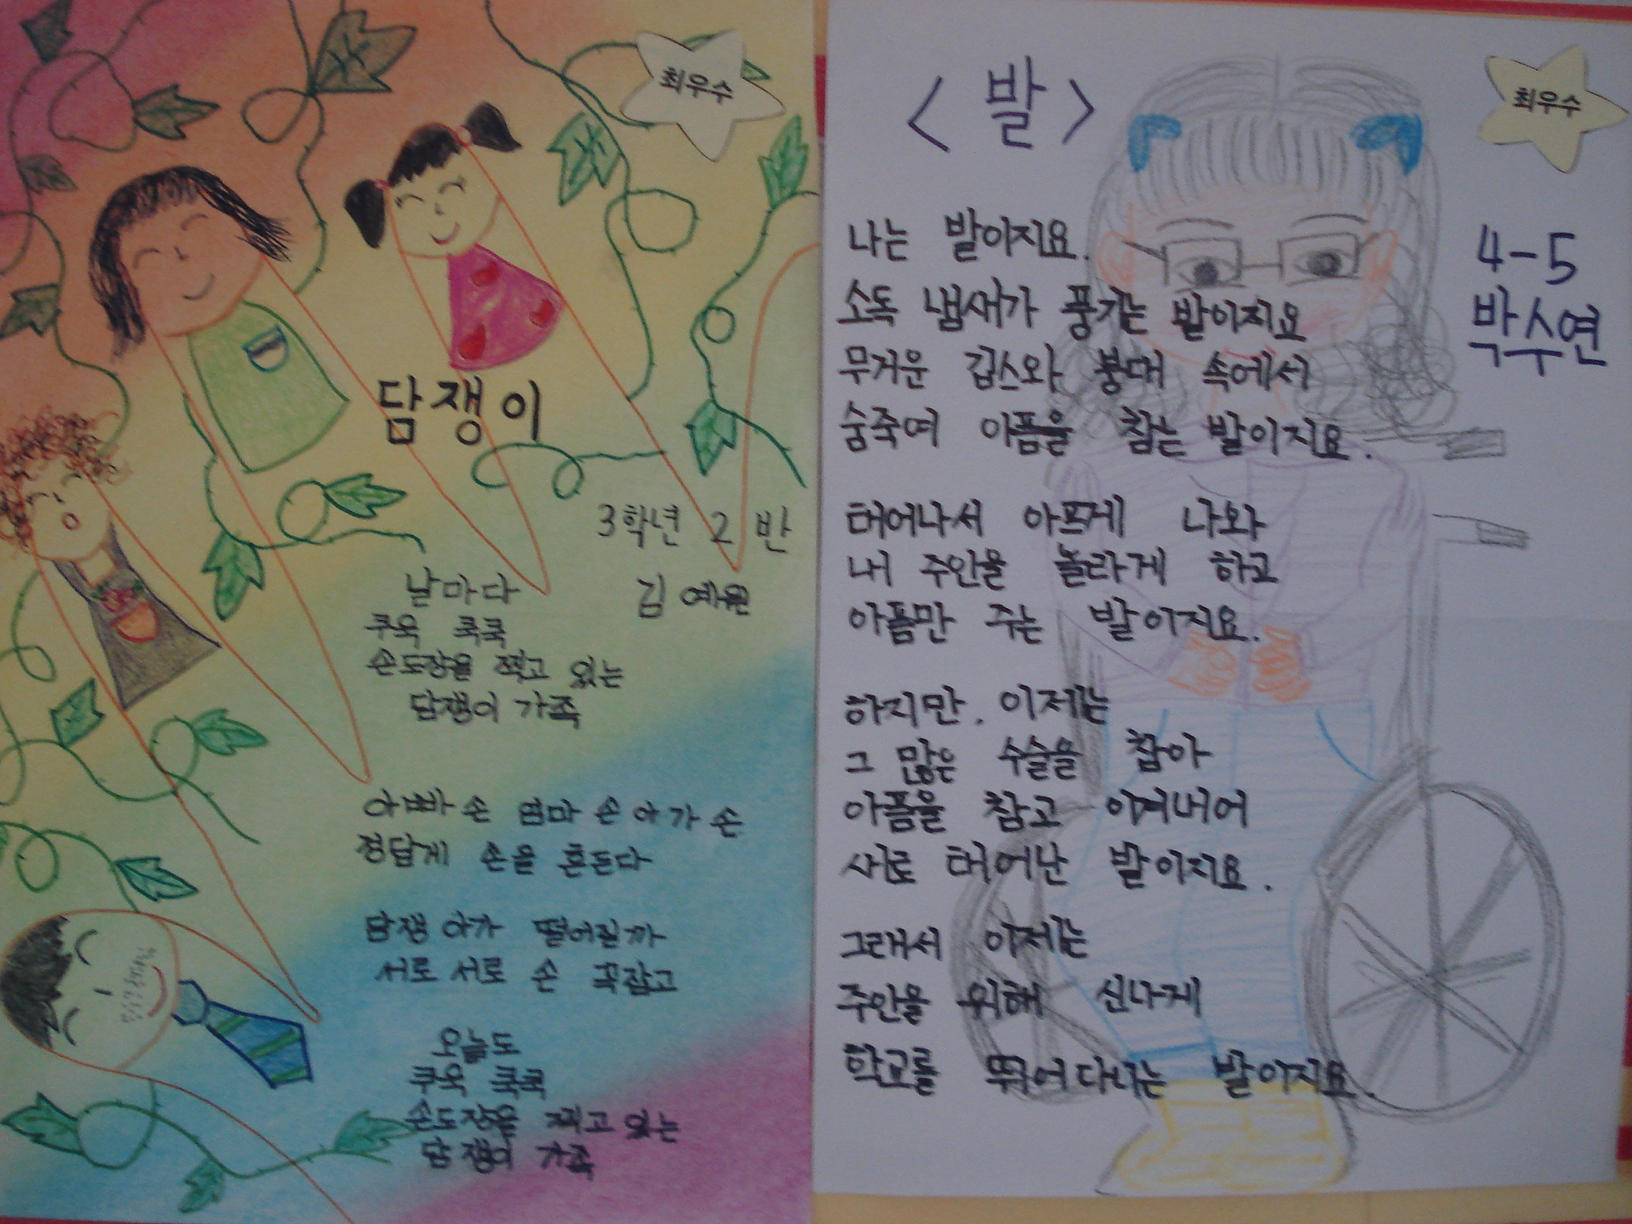 최우수
담쟁이
3학년 2 반
김 예원
날마다
쿠욱 쿡쿡
손도장을 찍고 있는
담쟁이 가족
아빠 손 엄마 손 아가 손
정답게 손을 흔든다
담쟁 아가 떨어질까
서로 서로 손 꼭잡고
오늘도
쿠욱 쿡쿡
손도장을 찍고 있는
담쟁이 가족
최우수
<발>
4-5
박수연
나는 발이지요.
소독 냄새가 풍기는 발이지요
무거운 깁스와 붕대 속에서
숨죽여 아픔을 참는 발이지요.
태어나서 아프게 나와
내 주인을 놀라게 하고
아픔만 주는 발이지요.
하지만, 이제는
그 많은 수술을 참아
아픔을 참고 이겨내어
새로 태어난 발이지요.
그래서 이제는
주인을 위해 신나게
학교를 뛰어다니는 발이지요.